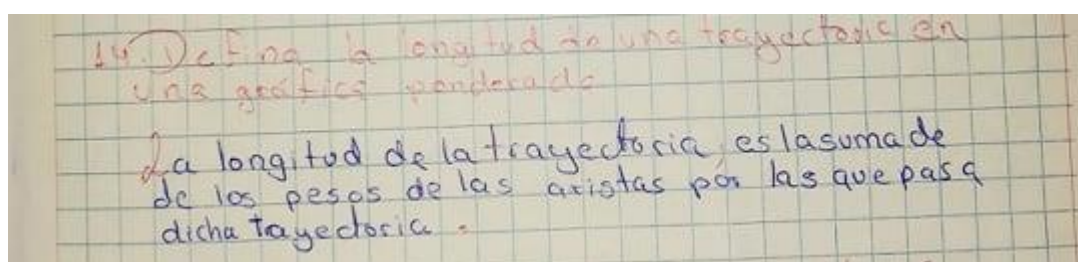 14. Defina la longitud de una trayectoria en
una gráfica ponderada
La longitud de la trayectoria, es la suma de
de los pesos de las aristas por las que pasa
dicha trayectoria.